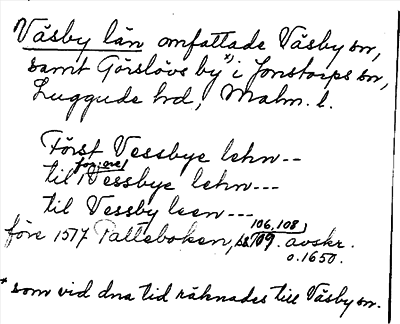 Väsby län omfattade Väsby sn,
samt Görslövs by*) i Jonstorps sn,
Luggude hd, Malm. l.
Först Vessbye lehn --
til forne Vessbye lehn ---
til Vessby leen ---
före 1577 Palteboken, s. 106, 108, 109. avskr.
o. 1650.
* som vid dna tid räknades till Väsby sn.